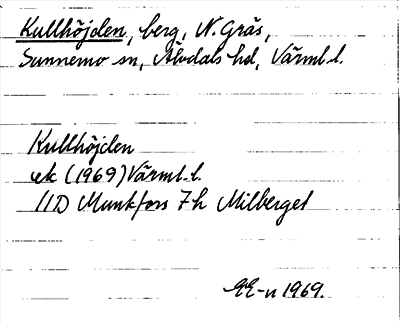 Kullhöjden, berg, N. Gräs,
Sunnemo sn, Älvdals hd, Värml. l.
Kullhöjden
ek (1969) Värml. l.
11D Munkfors 7h Milberget
EE-n 1969.